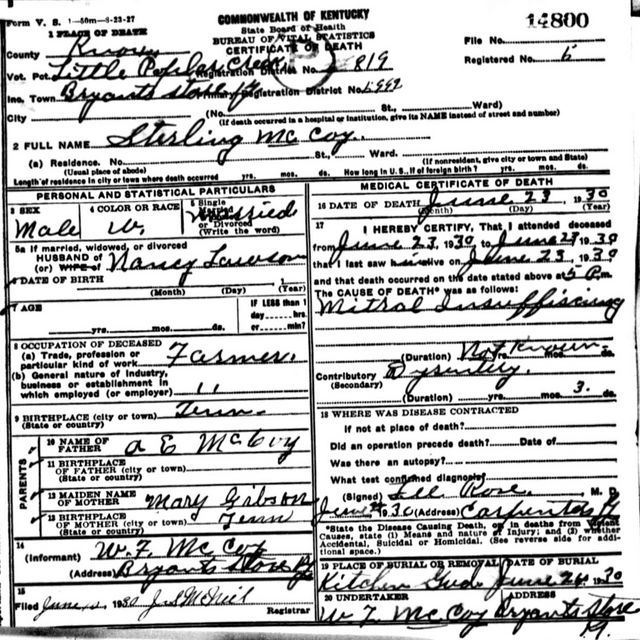 Form V. S. 1—50m—8-23-27
COMMONWEALTH OF KENTUCKY
State Board of Health
BUREAU OF VITAL STATISTICS
CERTIFICATE OF DEATH
14800
1 PLACE OF DEATH
File No.
Registered No. 5
County Knox
Vot. Pct. Little Poplar Creek Registration District No. 819
Inc. Town Bryants Store Ky Primary Registration District No.
City (No. St., Ward)
(If death occurred in a hospital or institution, give its NAME instead of street and number)
2 FULL NAME Sterling McCoy.
(a) Residence. No. St., Ward.
(Usual place of abode) (If nonresident, give city or town and State)
Length of residence in city or town where death occurred yrs. mos. ds. How long in U. S., if of foreign birth? yrs. mos. ds.
PERSONAL AND STATISTICAL PARTICULARS
3 SEX Male
4 COLOR OR RACE W.
5 Single
Married
or Divorced
(Write the word)
Married
5a If married, widowed, or divorced
HUSBAND of
(or) WIFE of Nancy Lawson
6 DATE OF BIRTH
(Month) (Day) (Year)
7 AGE
yrs. mos. ds.
IF LESS than 1
day hrs.
or min?
8 OCCUPATION OF DECEASED
(a) Trade, profession or
particular kind of work Farmer.
(b) General nature of industry,
business or establishment in
which employed (or employer) "
9 BIRTHPLACE (city or town) Tenn.
(State or country)
PARENTS
10 NAME OF
FATHER A E McCoy
11 BIRTHPLACE
OF FATHER (city or town)
(State or country)
12 MAIDEN NAME
OF MOTHER Mary Gibson
13 BIRTHPLACE
OF MOTHER (city or town) Tenn
(State or country)
14
(Informant) W. F. McCoy
(Address) Bryants Store Ky
15
Filed June 1930 J S McNeil
Registrar
MEDICAL CERTIFICATE OF DEATH
16 DATE OF DEATH June 23, 1930
(Month) (Day) (Year)
17 I HEREBY CERTIFY, That I attended deceased
from June 23, 1930, to June 23 1930
that I last saw him alive on June 23, 1930
and that death occurred on the date stated above at 5 P.m.
The CAUSE OF DEATH* was as follows:
Mitral Insuffiscincy
(Duration) Not Known yrs. mos. ds.
Contributory Dysentery.
(Secondary)
(Duration) yrs. mos. 3. ds.
18 WHERE WAS DISEASE CONTRACTED
If not at place of death?
Did an operation precede death? Date of
Was there an autopsy?
What test confirmed diagnosis?
(Signed) Lee Rose, M. D.
June 1930 (Address) Carpenter Ky
*State the Disease Causing Death, or in deaths from Violent
Causes, state (1) Means and nature of Injury; and (2) whether
Accidental, Suicidal or Homicidal. (See reverse side for addi-
tional space.)
19 PLACE OF BURIAL OR REMOVAL
DATE OF BURIAL
June 24 1930
20 UNDERTAKER
ADDRESS
W F McCoy Bryants Store
Ky.